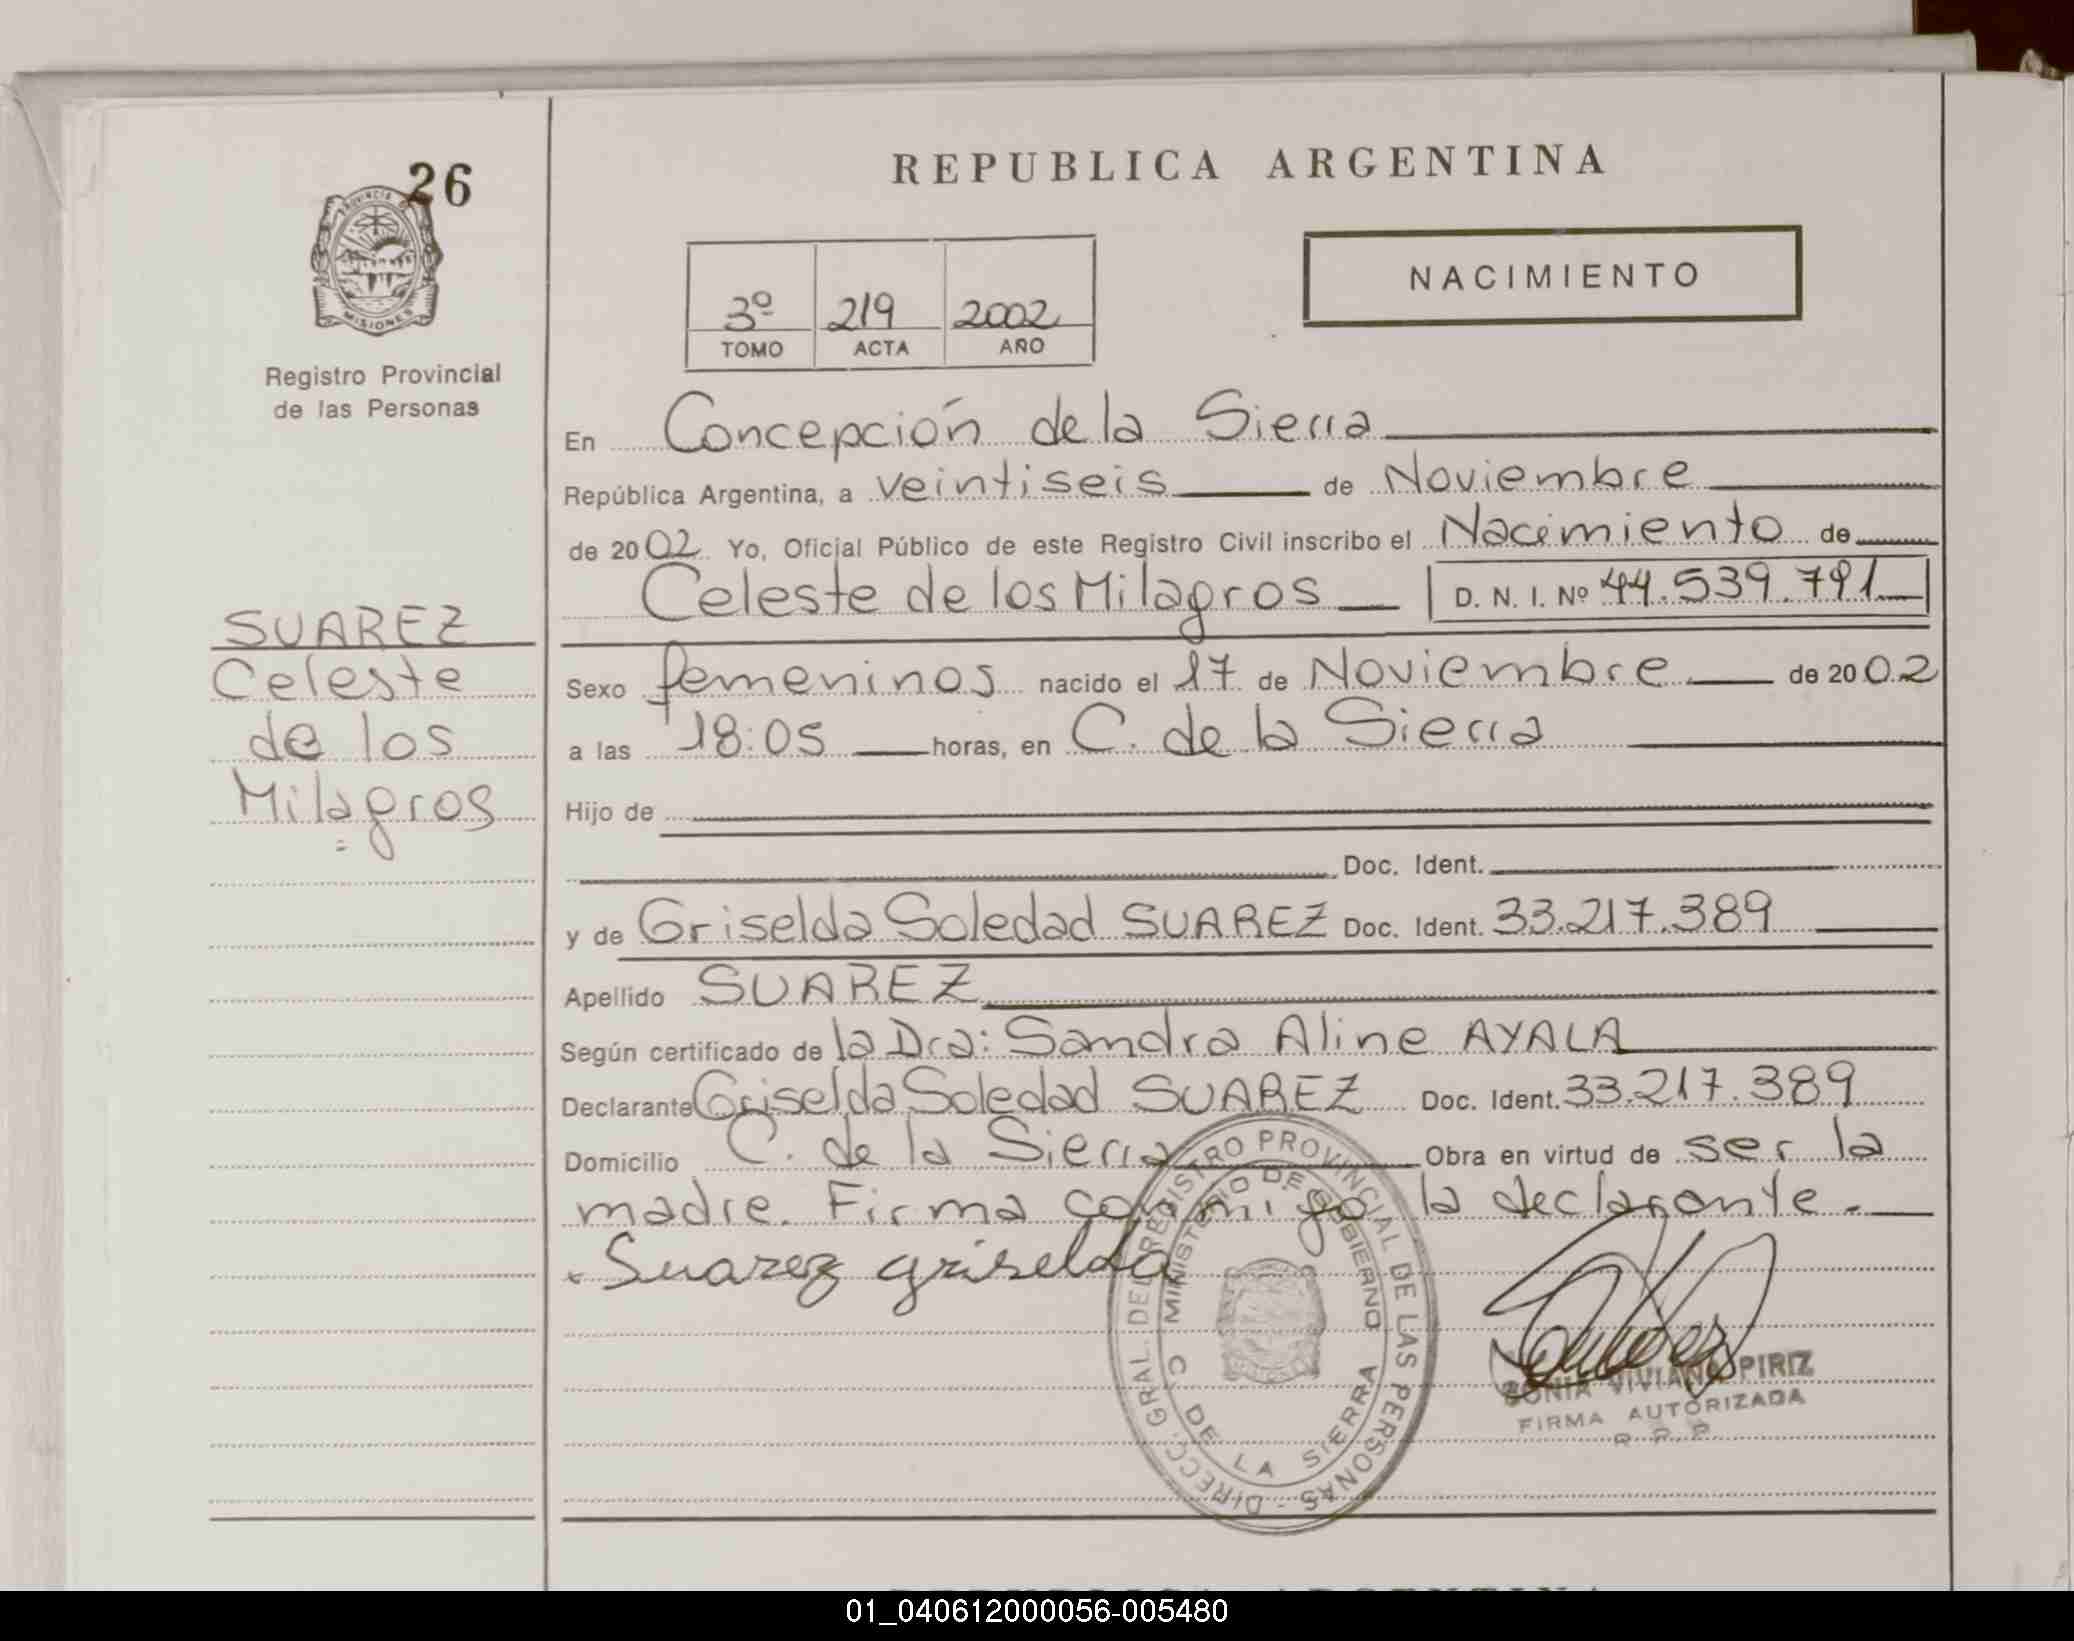 26
PROVINCIA DE
MISIONES
Registro Provincial
de las Personas
SUAREZ
Celeste
de los
Milagros
REPUBLICA ARGENTINA
NACIMIENTO
3º 219 2002
TOMO ACTA AÑO
En Concepción de la Sierra
República Argentina, a veintiseis de Noviembre
de 2002 Yo, Oficial Público de este Registro Civil inscribo el Nacimiento de
Celeste de los Milagros D. N. I. Nº 44.539.791
Sexo femeninos nacido el 17 de Noviembre de 2002
a las 18:05 horas, en C. de la Sierra
Hijo de
Doc. Ident.
y de Griselda Soledad SUAREZ Doc. Ident. 33.217.389
Apellido SUAREZ
Según certificado de la Dra: Sandra Aline AYALA
Declarante Griselda Soledad SUAREZ Doc. Ident. 33.217.389
Domicilio C. de la Sierra Obra en virtud de ser la
madre. Firma conmigo la declarante.
Suarez griselda
DIRECC. GRAL. DEL REGISTRO PROVINCIAL DE LAS PERSONAS -
MINISTERIO DE GOBIERNO
C. DE LA SIERRA
SONIA VIVIANA PIRIZ
FIRMA AUTORIZADA
R. P. P.
REPUBLICA ARGENTINA
01_040612000056-005480